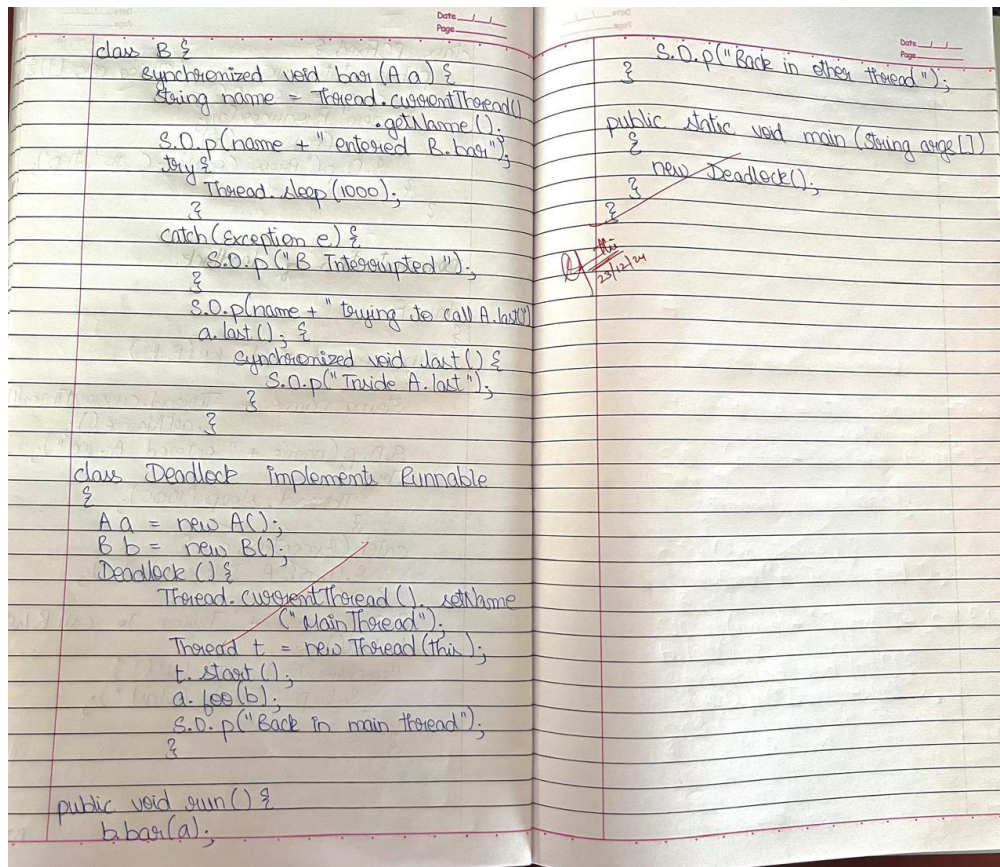 Date
Page
class B {
synchronized void bar(A a) {
String name = Thread.currentThread()
.getName();
S.O.p(name + " entered B.bar");
try {
Thread.sleep(1000);
}
catch(Exception e) {
S.O.p("B Interrupted");
}
S.O.p(name + " trying to call A.last()")
a.last(); {
synchronized void last() {
S.O.p("Inside A.last");
}
}
class Deadlock implements Runnable
{
A a = new A();
B b = new B();
Deadlock () {
Thread.currentThread().setName
("Main Thread");
Thread t = new Thread(this);
t.start();
a.foo(b);
S.O.p("Back in main thread");
}
public void run() {
b.bar(a);
Date
Page
S.O.p("Back in other thread");
}
public static void main (String args[])
{
new Deadlock();
}
}
23/12/24